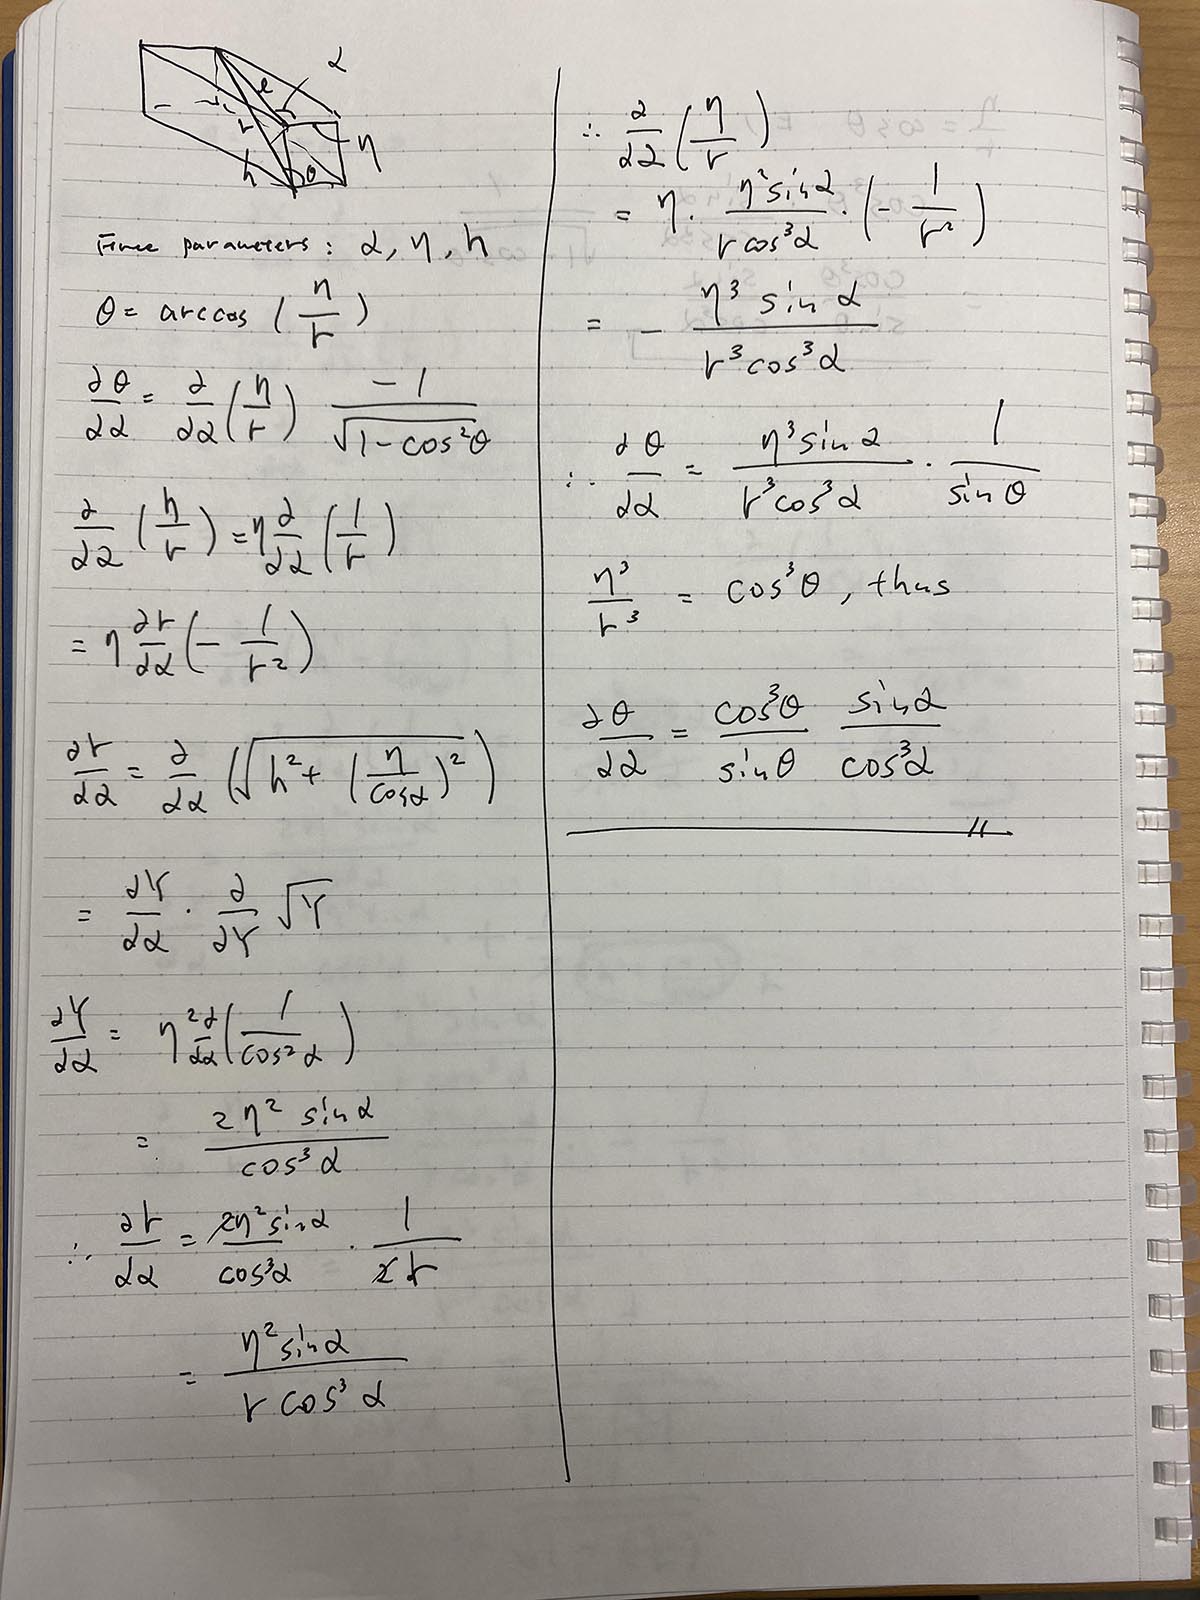 α
l
r
η
h
θ
Free parameters: α, η, h
θ = arccos (η/r)
∂θ/∂α = ∂/∂α (η/r) -1/√(1-cos²θ)
∂/∂α (η/r) = η ∂/∂α (1/r)
= η ∂r/∂α (- 1/r²)
∂r/∂α = ∂/∂α (√(h² + (η/cosα)²))
= ∂Y/∂α · ∂/∂Y √Y
∂Y/∂α = η² ∂/∂α (1/cos²α)
= 2η² sinα / cos³α
∴ ∂r/∂α = 2η² sinα / cos³α · 1/2r
= η² sinα / r cos³α
∴ ∂/∂α (η/r)
= η · η² sinα / r cos³α · (- 1/r²)
= - η³ sinα / r³ cos³α
∴ ∂θ/∂α = η³ sinα / r³ cos³α · 1/sinθ
η³/r³ = cos³θ, thus
∂θ/∂α = cos³θ/sinθ sinα/cos³α